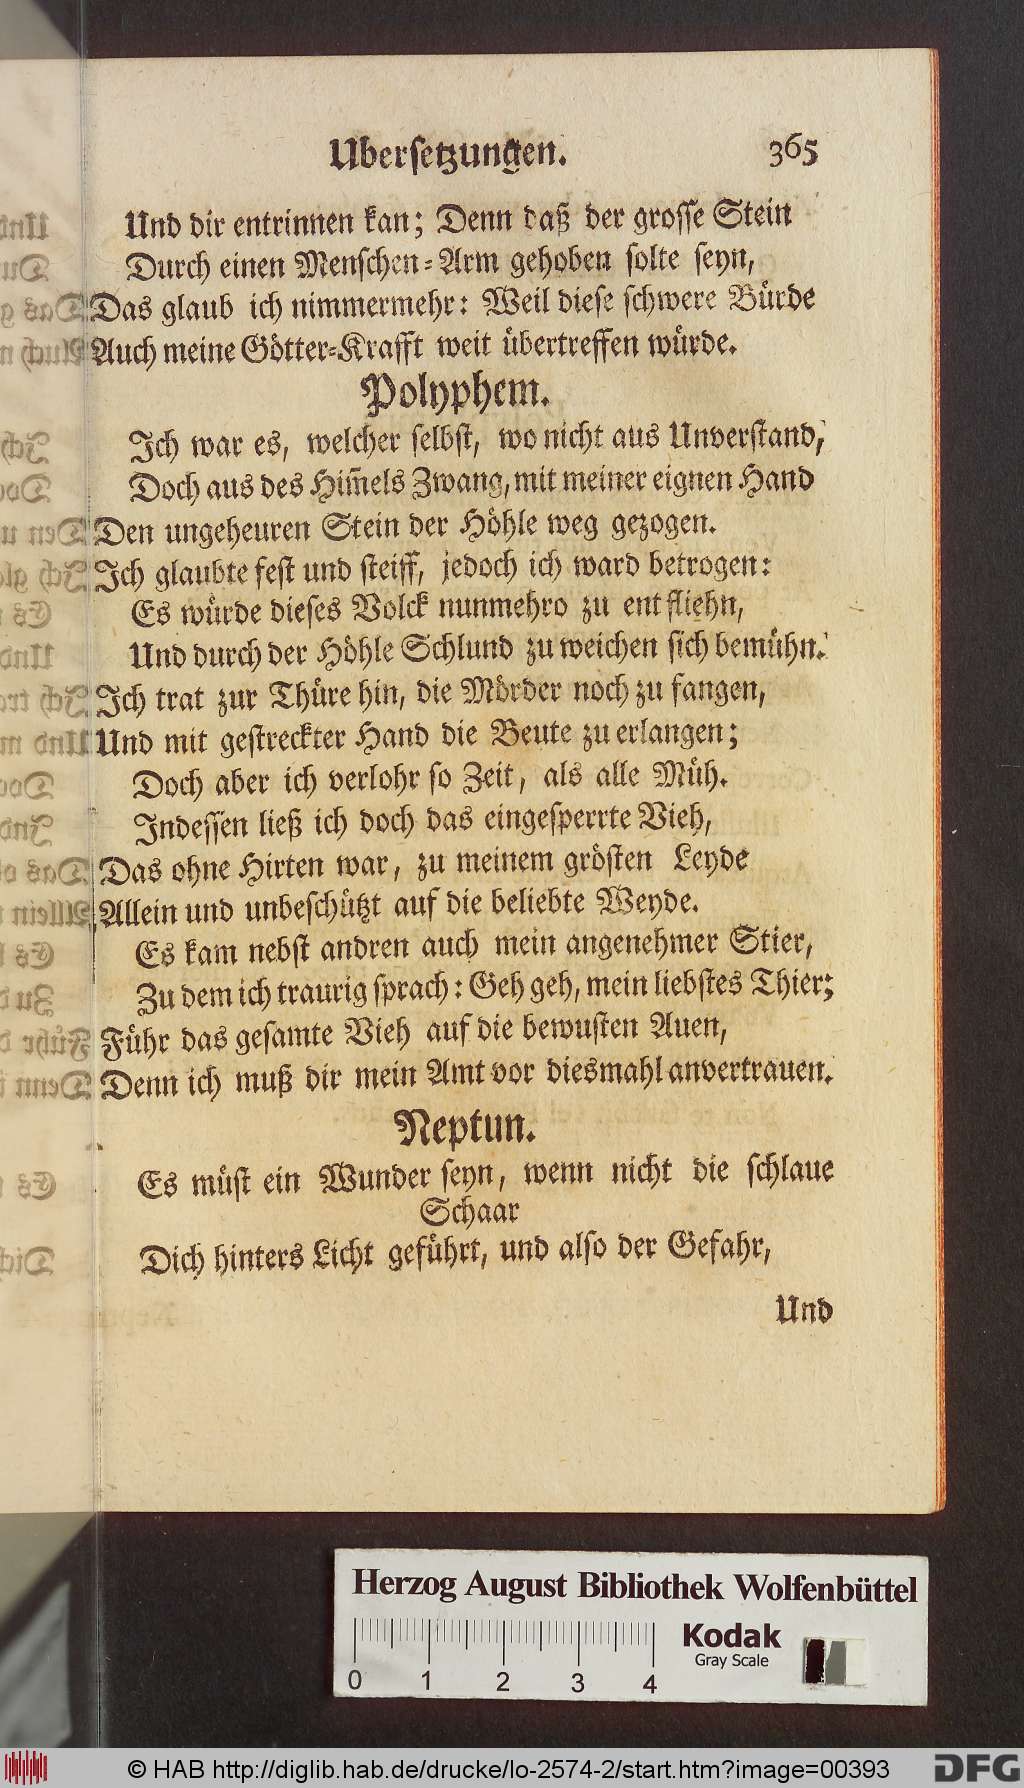 Ubersetzungen. 365
Und dir entrinnen kan; Denn daß der grosse Stein
Durch einen Menschen-Arm gehoben solte seyn,
Das glaub ich nimmermehr: Weil diese schwere Bürde
Auch meine Götter-Krafft weit übertreffen würde.
Polyphem.
Ich war es, welcher selbst, wo nicht aus Unverstand,
Doch aus des Him̃els Zwang, mit meiner eignen Hand
Den ungeheuren Stein der Höhle weg gezogen.
Ich glaubte fest und steiff, jedoch ich ward betrogen:
Es würde dieses Volck nunmehro zu entfliehn,
Und durch der Höhle Schlund zu weichen sich bemühn.
Ich trat zur Thüre hin, die Mörder noch zu fangen,
Und mit gestreckter Hand die Beute zu erlangen;
Doch aber ich verlohr so Zeit, als alle Müh.
Indessen ließ ich doch das eingesperrte Vieh,
Das ohne Hirten war, zu meinem grösten Leyde
Allein und unbeschützt auf die beliebte Weyde.
Es kam nebst andren auch mein angenehmer Stier,
Zu dem ich traurig sprach: Geh geh, mein liebstes Thier;
Führ das gesamte Vieh auf die bewusten Auen,
Denn ich muß dir mein Amt vor diesmahl anvertrauen.
Neptun.
Es müst ein Wunder seyn, wenn nicht die schlaue
Schaar
Dich hinters Licht geführt, und also der Gefahr,
Und
Herzog August Bibliothek Wolfenbüttel
Kodak
Gray Scale
0 1 2 3 4
© HAB http://diglib.hab.de/drucke/lo-2574-2/start.htm?image=00393
DFG